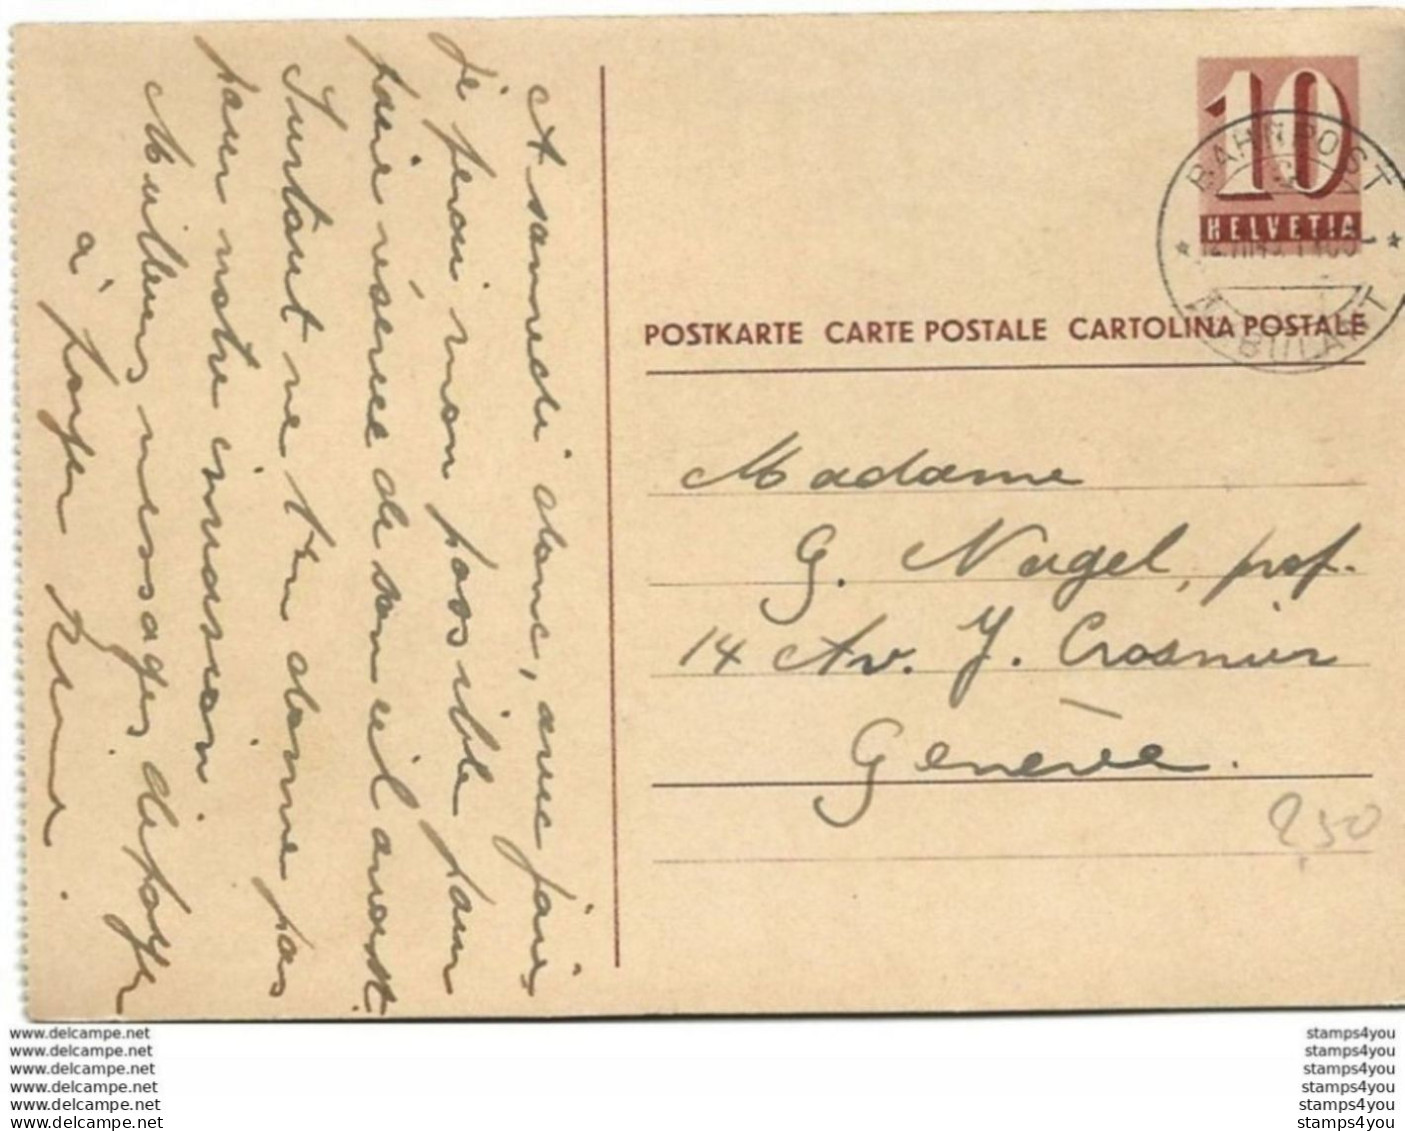 A samedi donc, avec joie,
je ferai mon possible pour
faire réserve de sommeil avant.
Surtout ne t'en donne pas
pour notre invasion.
Meilleurs messages de
à
10
HELVETIA
BAHNPOST
AMBULANT
POSTKARTE CARTE POSTALE CARTOLINA POSTALE
Madame
G. Nagel, prof.
14 Av. J. Crosnier
Genève.
2,50
www.delcampe.net
www.delcampe.net
www.delcampe.net
www.delcampe.net
www.delcampe.net
www.delcampe.net
stamps4you
stamps4you
stamps4you
stamps4you
stamps4you
stamps4you